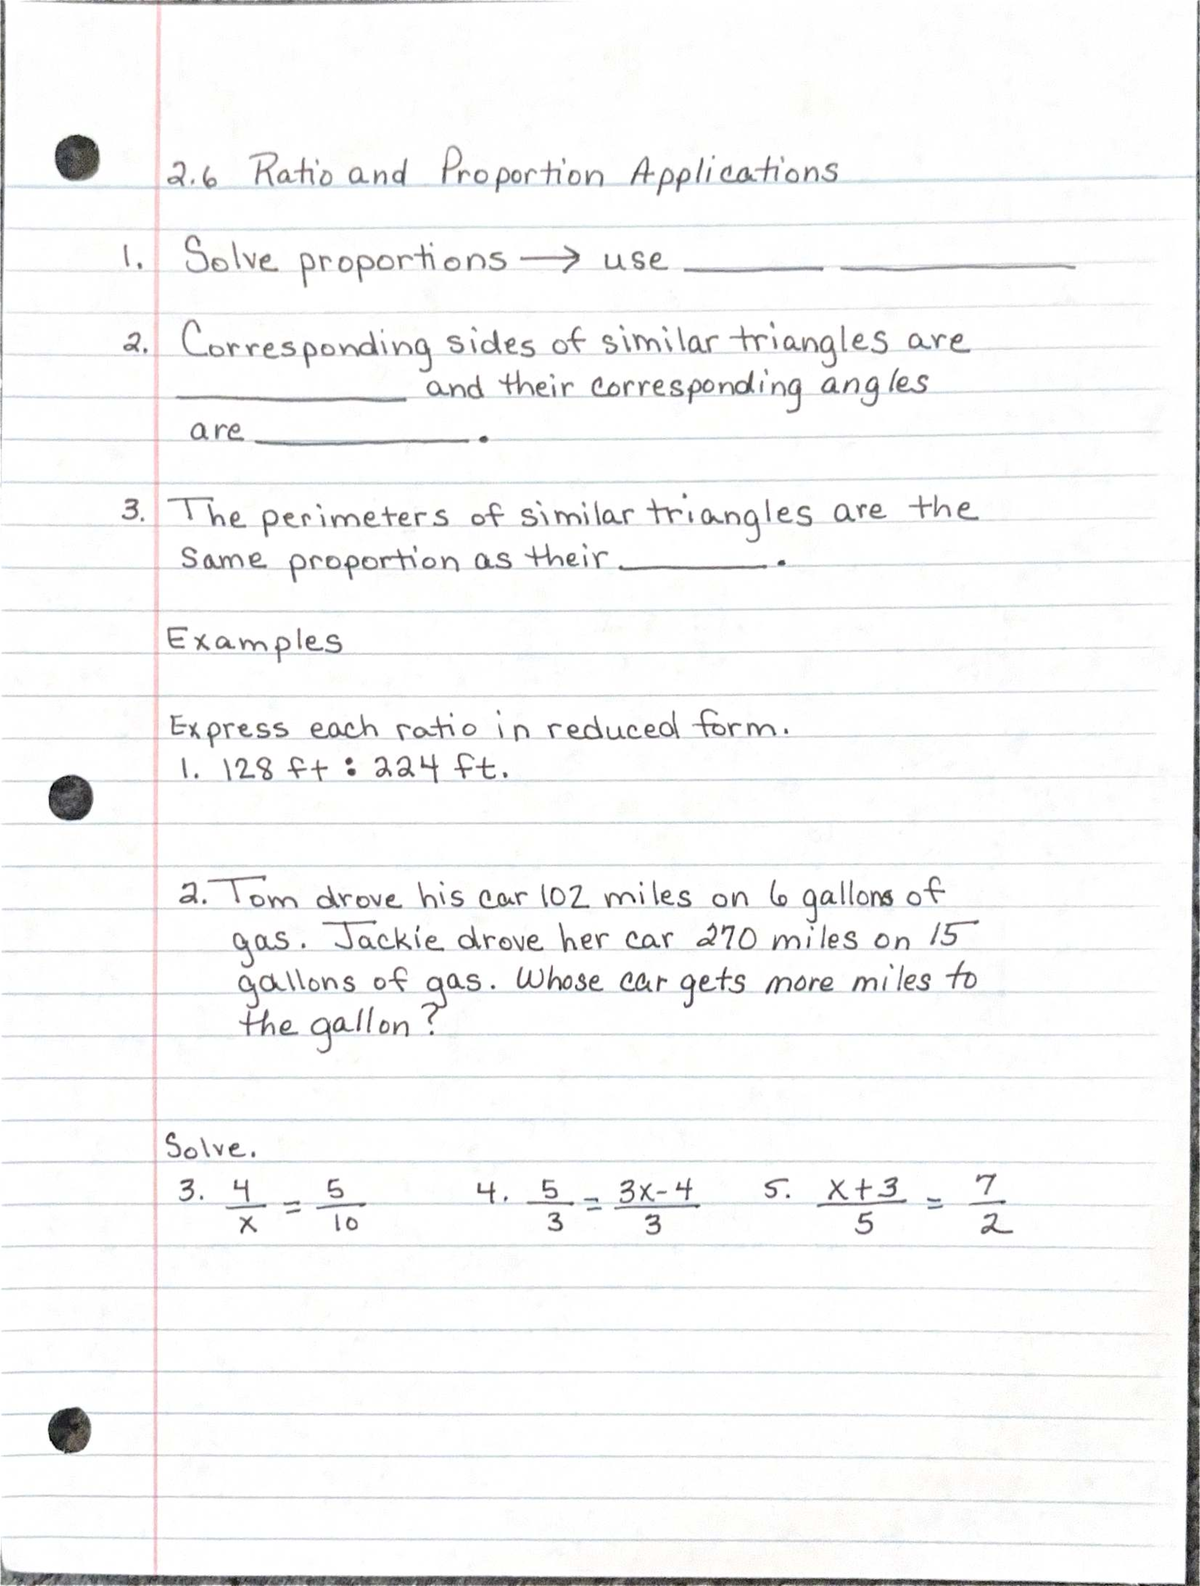 2.6 Ratio and Proportion Applications
1. Solve proportions → use ______ ______
2. Corresponding sides of similar triangles are
______ and their corresponding angles
are ______.
3. The perimeters of similar triangles are the
same proportion as their ______.
Examples
Express each ratio in reduced form.
1. 128 ft : 224 ft.
2. Tom drove his car 102 miles on 6 gallons of
gas. Jackie drove her car 270 miles on 15
gallons of gas. Whose car gets more miles to
the gallon?
Solve.
3. 4/x = 5/10 4. 5/3 = 3x-4/3 5. x+3/5 = 7/2